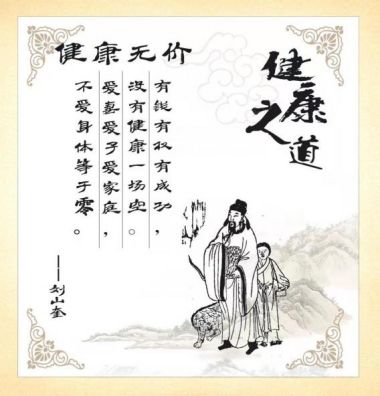 健康之道
健康无价
有钱有权有成功，
没有健康一场空。
爱妻爱子爱家庭，
不爱身体等于零。
——刘山奎